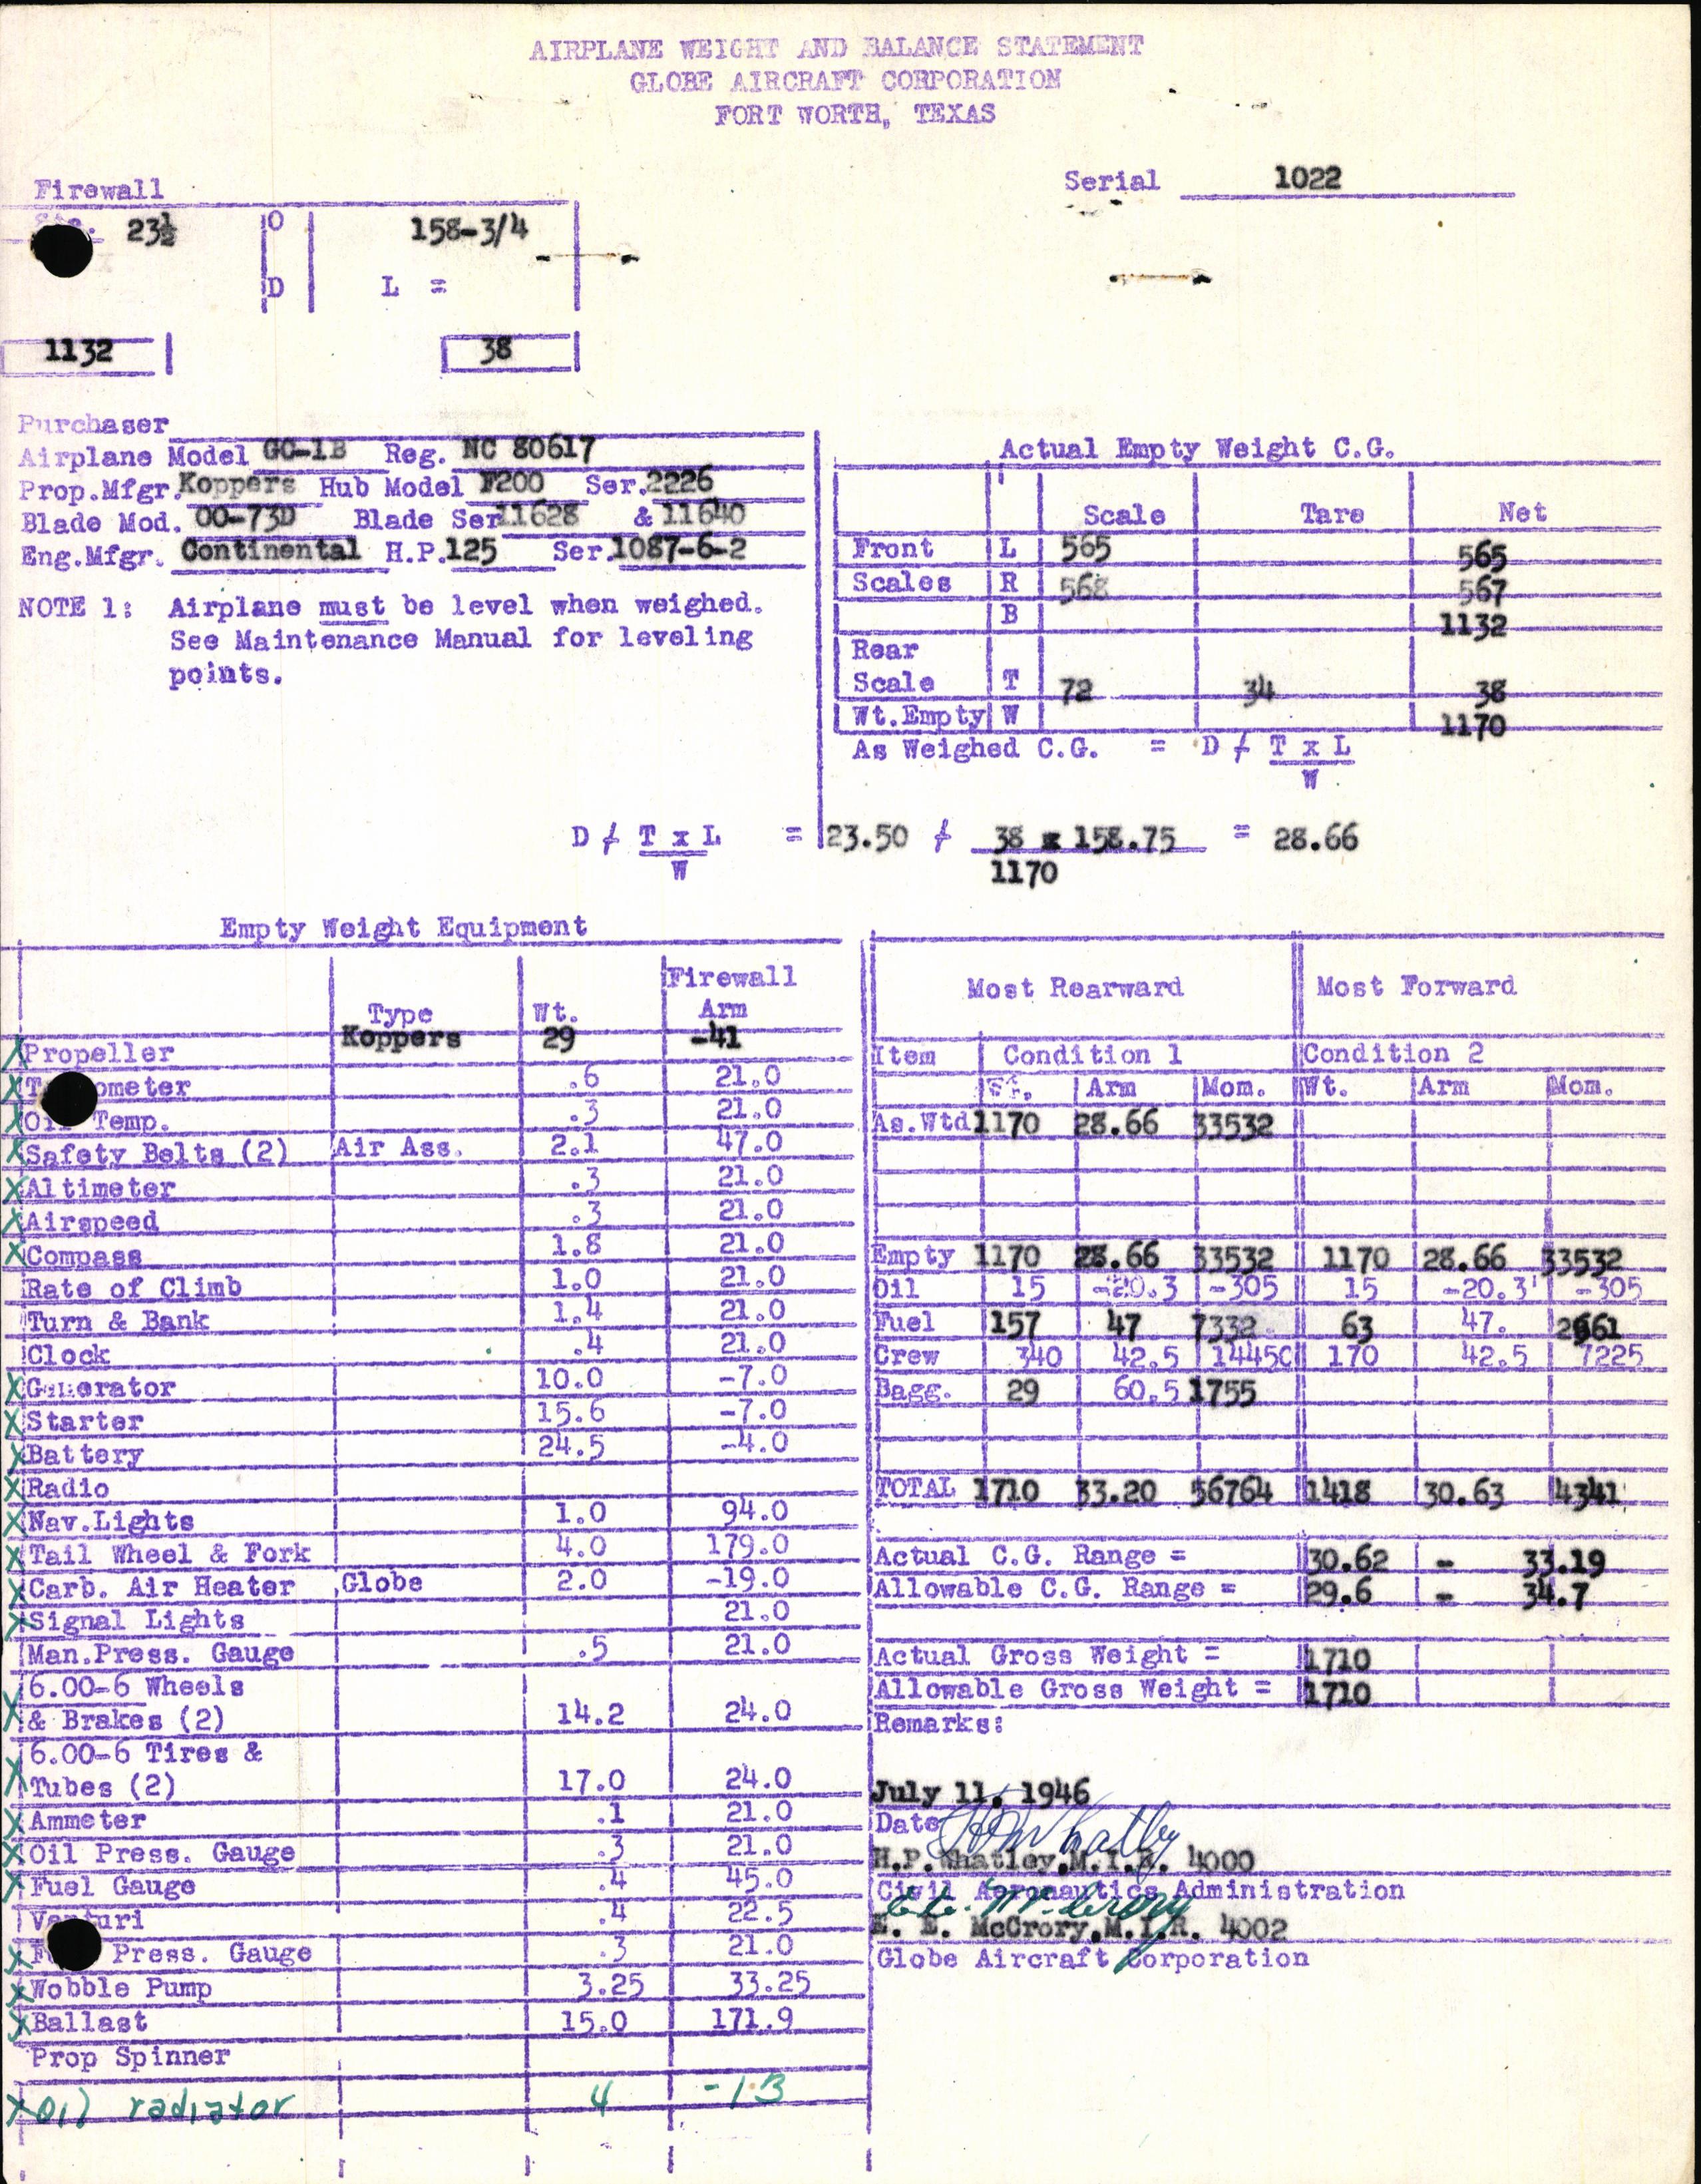 AIRPLANE WEIGHT AND BALANCE STATEMENT
GLOBE AIRCRAFT CORPORATION
FORT WORTH, TEXAS
Serial 1022
Firewall
23½ O 158-3/4
D L =
1132 38
Purchaser
Airplane Model GC-1B Reg. NC 80617
Prop.Mfgr.Koppers Hub Model F200 Ser.2226
Blade Mod. 00-73D Blade Ser 11628 & 11640
Eng.Mfgr. Continental H.P.125 Ser.1087-6-2
NOTE 1: Airplane must be level when weighed.
See Maintenance Manual for leveling
points.
Actual Empty Weight C.G.
Scale Tare Net
Front L 565 565
Scales R 568 567
B 1132
Rear
Scale T 72 34 38
Wt.Empty W 1170
As Weighed C.G. = D ⁄ T x L
W
D ⁄ T x L = 23.50 ⁄ 38 x 158.75 = 28.66
W 1170
Empty Weight Equipment
Type Wt. Firewall Arm
X Propeller Koppers 29 -41
X .6 21.0
X Temp. .3 21.0
X Safety Belts (2) Air Ass. 2.1 47.0
X Altimeter .3 21.0
X Airspeed .3 21.0
X Compass 1.8 21.0
Rate of Climb 1.0 21.0
Turn & Bank 1.4 21.0
Clock .4 21.0
X Generator 10.0 -7.0
X Starter 15.6 -7.0
X Battery 24.5 -4.0
X Radio
X Nav.Lights 1.0 94.0
X Tail Wheel & Fork 4.0 179.0
X Carb. Air Heater Globe 2.0 -19.0
X Signal Lights 21.0
Man.Press. Gauge .5 21.0
6.00-6 Wheels
X & Brakes (2) 14.2 24.0
6.00-6 Tires &
X Tubes (2) 17.0 24.0
X Ammeter .1 21.0
X Oil Press. Gauge .3 21.0
X Fuel Gauge .4 45.0
Venturi .4 22.5
X Press. Gauge .3 21.0
X Wobble Pump 3.25 33.25
X Ballast 15.0 171.9
Prop Spinner
X Oil radiator 4 -13
Most Rearward Most Forward
Item Condition 1 Condition 2
Wt. Arm Mom. Wt. Arm Mom.
As.Wtd 1170 28.66 33532
Empty 1170 28.66 33532 1170 28.66 33532
Oil 15 -20.3 -305 15 -20.3 -305
Fuel 157 47 7332 63 47. 2961
Crew 340 42.5 14450 170 42.5 7225
Bagg. 29 60.5 1755
TOTAL 1710 33.20 56764 1418 30.63 4341
Actual C.G. Range = 30.62 - 33.19
Allowable C.G. Range = 29.6 - 34.7
Actual Gross Weight = 1710
Allowable Gross Weight = 1710
Remarks:
July 11, 1946
Date
H P Whatley
H.P.Whatley,M.I.R. 4000
Civil Aeronautics Administration
E. E. McCrory
E. E. McCrory,M.I.R. 4002
Globe Aircraft Corporation